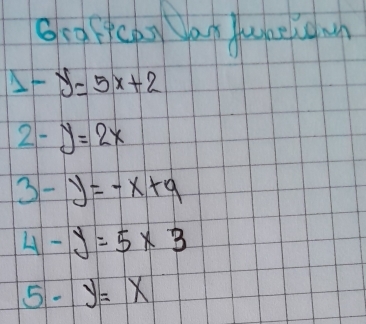 Graficar las funcion
1- y=5x+2
2- y=2x
3- y=-x+9
4- y=5x3
5- y=x